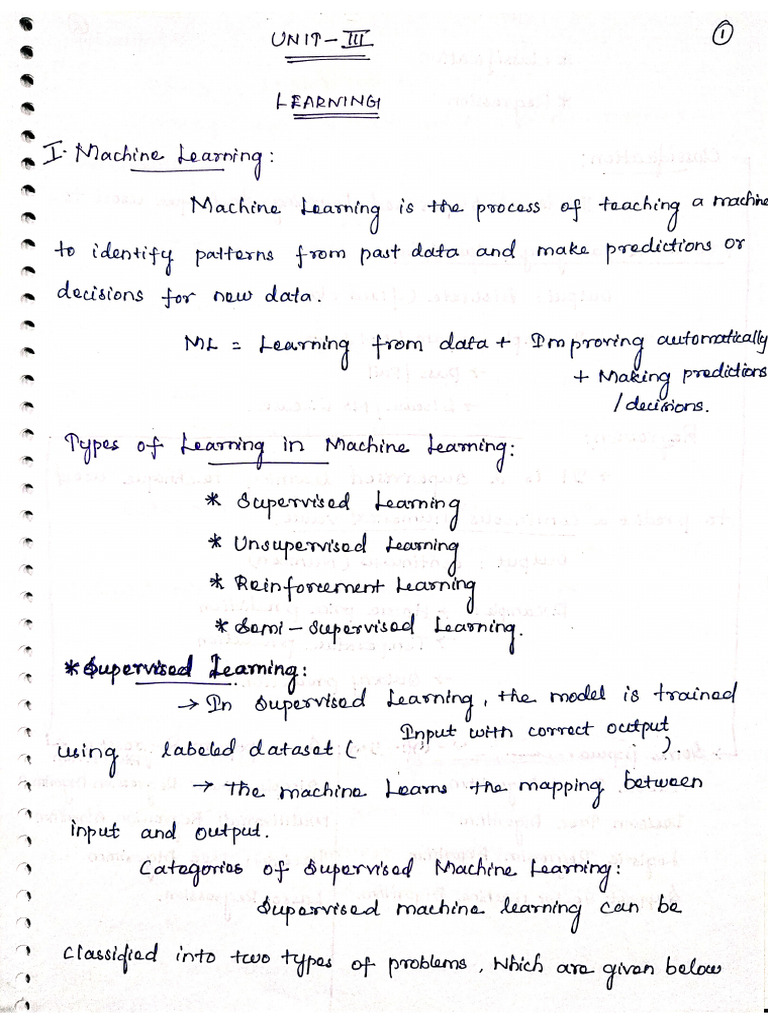 1
UNIT-III
LEARNING
I. Machine Learning:
Machine Learning is the process of teaching a machine
to identify patterns from past data and make predictions or
decisions for new data.
ML = Learning from data + Improving automatically
+ Making predictions
/decisions.
Types of Learning in Machine Learning:
* Supervised Learning
* Unsupervised Learning
* Reinforcement Learning
* Semi-Supervised Learning.
* Supervised Learning:
→ In Supervised Learning, the model is trained
using labeled dataset (Input with correct output).
→ The machine Learns the mapping between
input and output.
Catagories of Supervised Machine Learning:
Supervised machine learning can be
classified into two types of problems, Which are given below